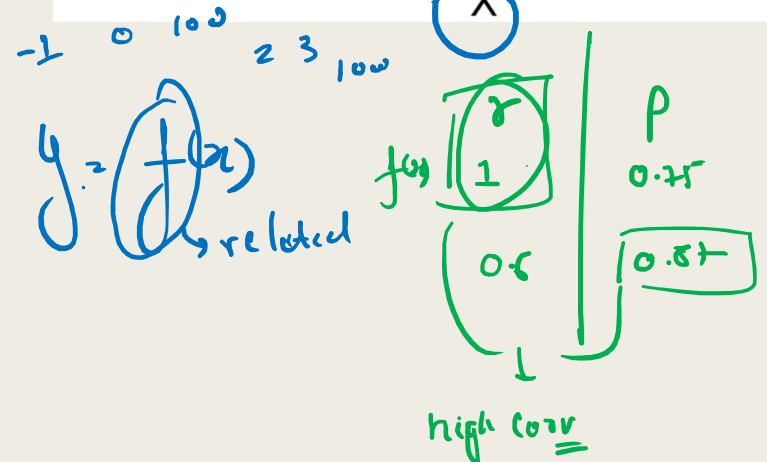 X
-1 0 100
2 3 100
y = f(x)
related
r p
f(x) 1 0.75
0.8
high corr